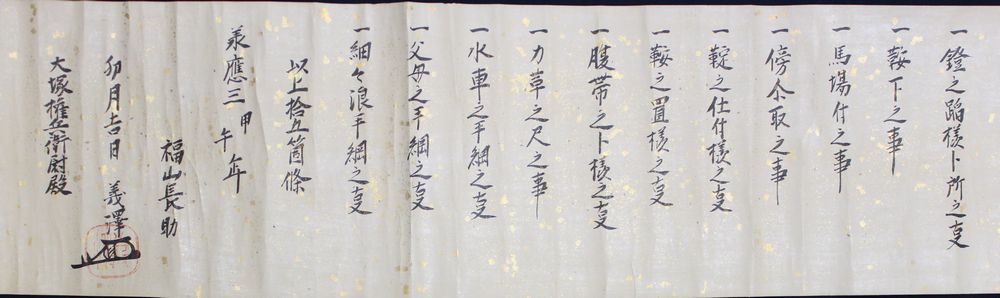 一鐙之蹈様卜所之支
一鞍下之事
一馬場付之事
一傍尒取之事
一靛之仕付様之支
一鞍之置様之支
一腹帯之卜様之支
一力草之尺之事
一水車之手綱之支
一父母之手綱之支
一細々浪手綱之支
以上拾五箇條
承應三甲午年
福山長助
卯月吉日 義澤
大塚権兵衛尉殿